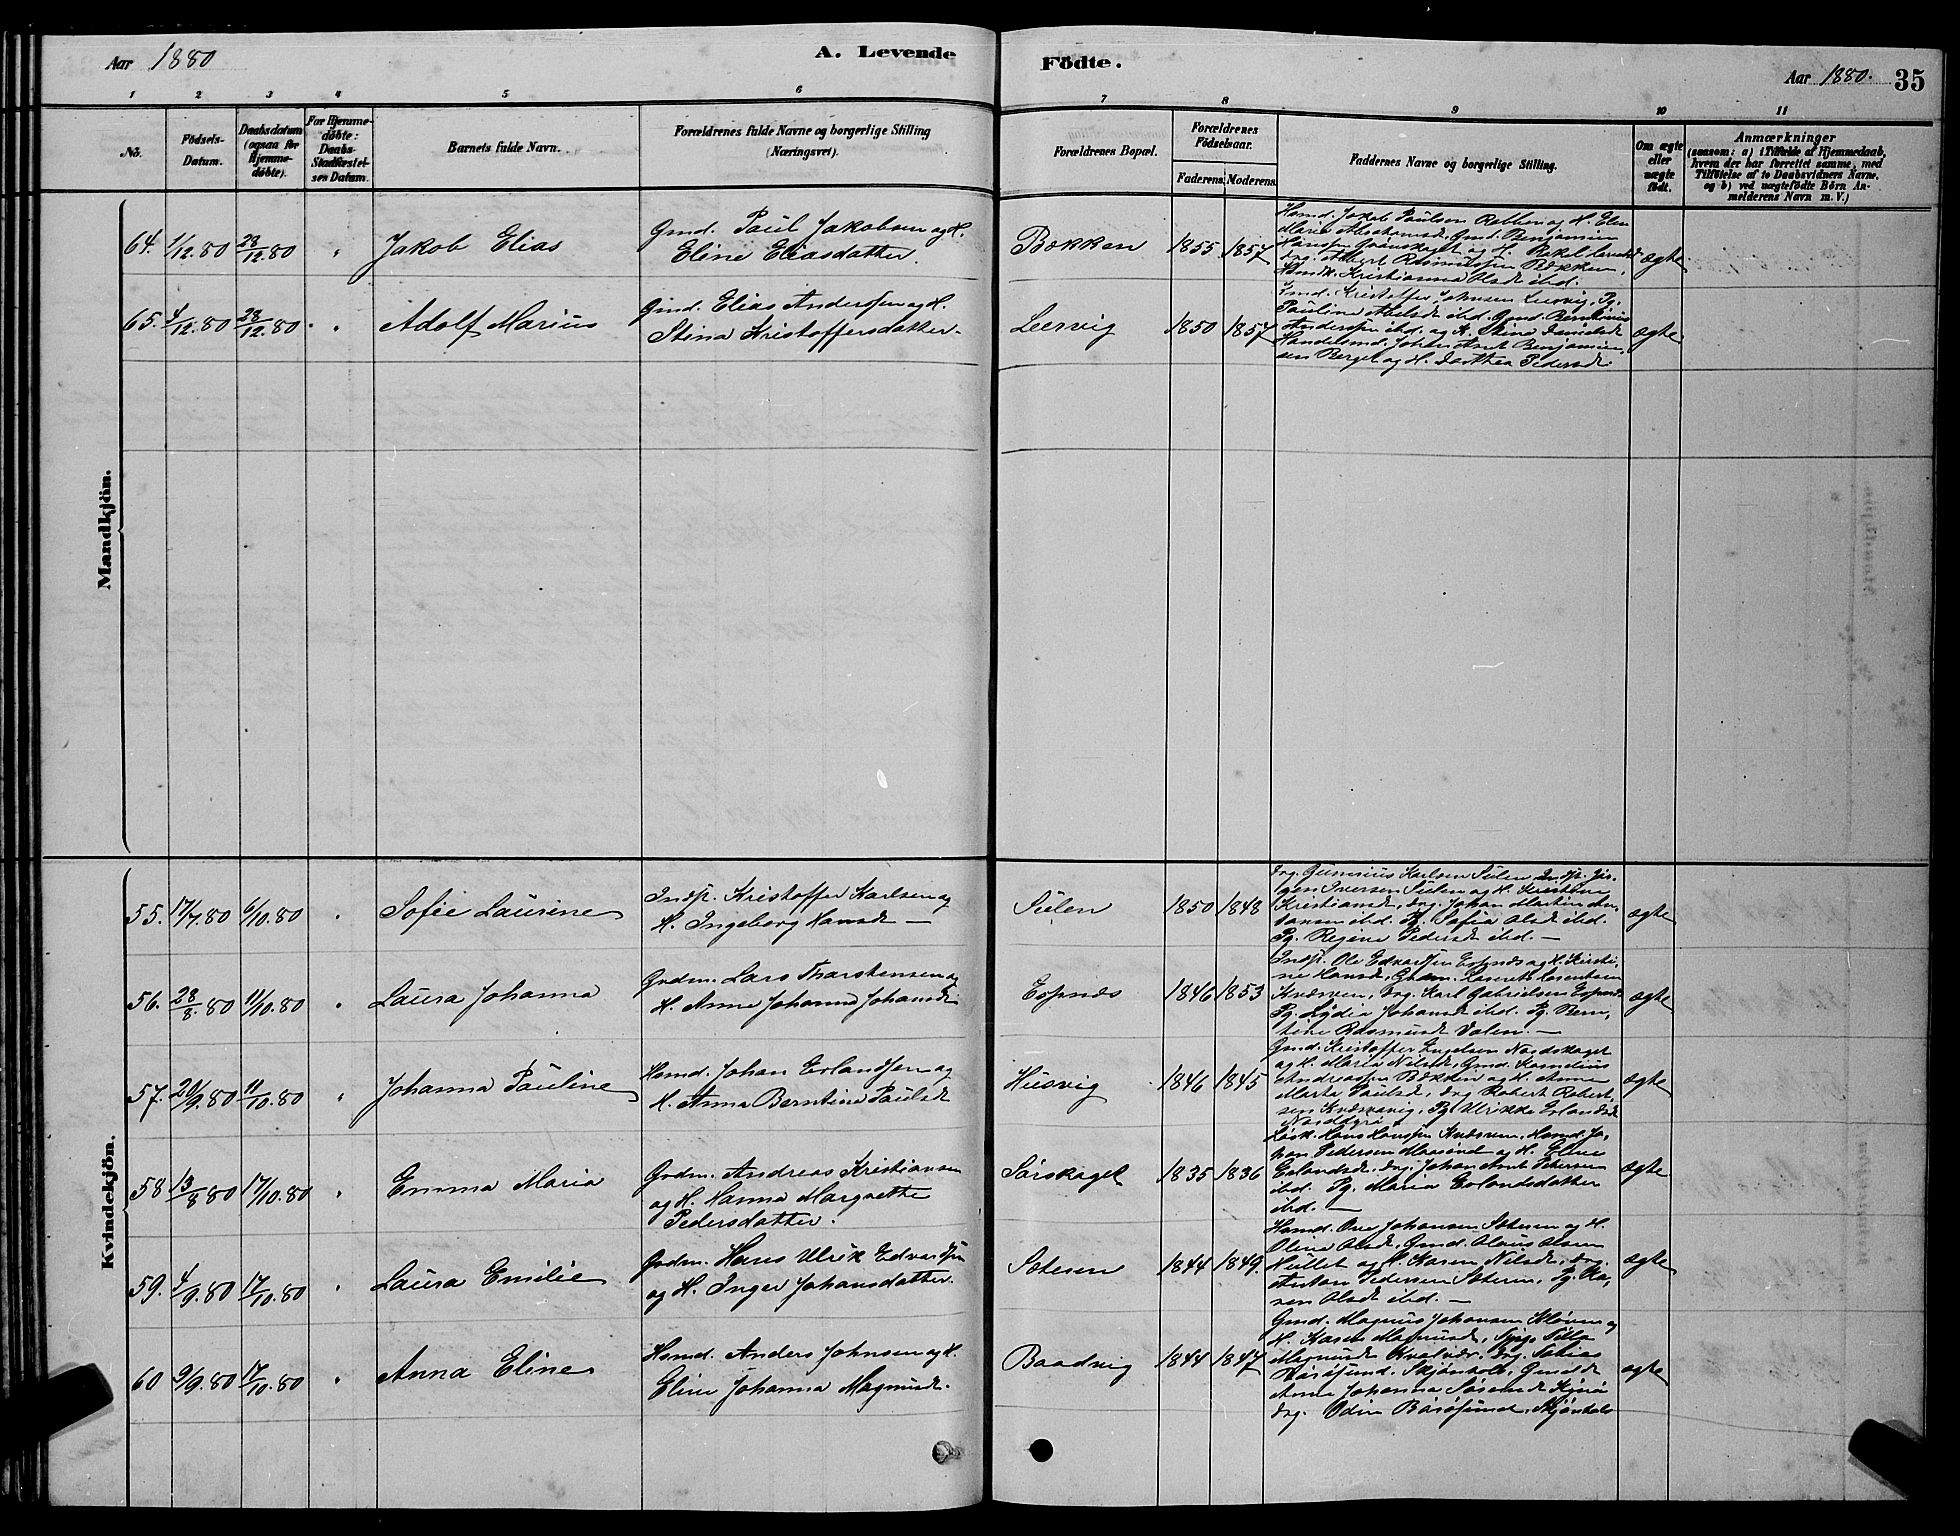 Aar 1880
A. Levende
Födte.
Aar 1880. 35
1 2 3 4 5 6 7 8 9 10 11
No.
Födsels-
Datum.
Daabsdatum
(ogsaa for
Hjemme-
døbte).
For Hjemme-
døbte:
Daabs-
Stadfæstel-
ses Datum.
Barnets fulde Navn.
Forældrenes fulde Navne og borgerlige Stilling
(Næringsvei).
Forældrenes Bopæl.
Forældrenes
Födselsaar.
Faderens. Moderens.
Faddernes Navne og borgerlige Stilling.
Om ægte
eller
uægte
födt.
Anmærkninger
(saasom: a) i Tilfælde af Hjemmedaab,
hvem der har forrettet samme, med
Tilföielse af to Daabsvidners Navne,
og b) ved uægtefödte Börn An-
melderens Navn m. V.)
Mandkjön.
64. 1/12.80 28/12.80 " Jakob Elias
Gmd. Paul Jakobsen og H.
Eline Eliasdatter.
Bækken 1855 1857
Hsmd. Jakob Paulsen Rabben og H. Elen
Maria Abrahamsd., Gmd. Benjamin
Hansen og H. Rakel
Ing. Albert Rasmussen Bækken,
Kristianna Olsd. ibd.
ægte
65. 4/12.80 28/12.80. " Adolf Marius
Gmd. Elias Andersen og H.
Stina Kristoffersdatter.
Leervig 1850 1857
Gmd. Kristoffer Johnsen Leervig, Pg.
Pauline ibd. Gmd. Berntinus
Andersen ibd. og H. Stine Danielsd.
Handelsmd. Johan Arnt Benjamin-
sen Berget og H. Dorthea Pedersd.
ægte
Kvindekjön.
55. 17/7.80 6/10.80 " Sofie Laurine
Indsp. Kristoffer Karlsen og
H. Ingeborg Hansd. —
Sulen 1850 1848
Ing. Gunerius Karlsen Sulen, Indsp. Jør-
gen Iversen Sulen og H. Kristine
Kristiansd., Ing. Johan Martin An-
tonsen ibd. Pg. Sofia Olsd. ibd.
Pg. Regine Pedersd. ibd. —
ægte
56. 28/8.80 11/10.80 " Laura Johanna
Grdm. Lars Thorstensen og
H. Anne Johanna Johansd.
Espnes 1846 1853
Indsp. Ole Edvardsen Espnes og H. Kirsti-
ne Hansd., Lorentsen
Kværven, Ing. Karl Gabrielsen Espnes
Pg. Lydia Johansd. ibd. Pg. Bern-
tine Rasmusd. Valen. —
ægte
57. 21/9.80 11/10.80 " Johanna Pauline
Hsmd. Johan Erlandsen og
H. Anna Berntine Paulsd.
Husvig 1846 1845
Gmd. Kristoffer Engelsen Nordskaget
og H. Maria Nilsd., Gmd. Kornelius
Andreassen Bækken og H. Anne
Marta Paulsd., Ing. Robert Robert-
sen Kværnavig, Pg. Ulrikke Erlandsd.
ægte
58 13/8.80 17/10.80 " Emma Maria
Grdm. Andreas Kristiansen
og H. Hanna Margrethe
Pedersdatter.
Sørskaget 1835 1836
Hans Hansen Kværven, Hsmd. Jo-
han Pedersen og H. Eline
Erlandsd., Ing. Johan Arnt Petersen
ibd. Pg. Maria Erlandsdatter
ibd. —
ægte
59. 4/9.80 17/10.80 " Laura Emilie
Grdm. Hans Ulrik Edvardsen
og H. Inger Johansdatter.
Sætesen 1844 1849.
Hsmd. Ove Johansen Sætesen og H.
Olina Olsd., Gmd. Olaus Olsen
Hullet og H. Karen Nilsd., Ing.
Anton Pedersen Sætesen, Pg. Ka-
ren Olsd. ibd. —
ægte
60 9/9.80 17/10.80 " Anna Eline
Hsmd. Anders Johnsen og H.
Eline Johanna Magnusd.
Baadvig 1844 1847
Gmd. Magnus Johansen og
H. Karen Magnusd.,
Magnusd. Kvalvær, Ing. Tobias
Borøsund, Skjønhals,
Anne Johanna
Ing. Odin Borøsund, Skjønhals
ægte